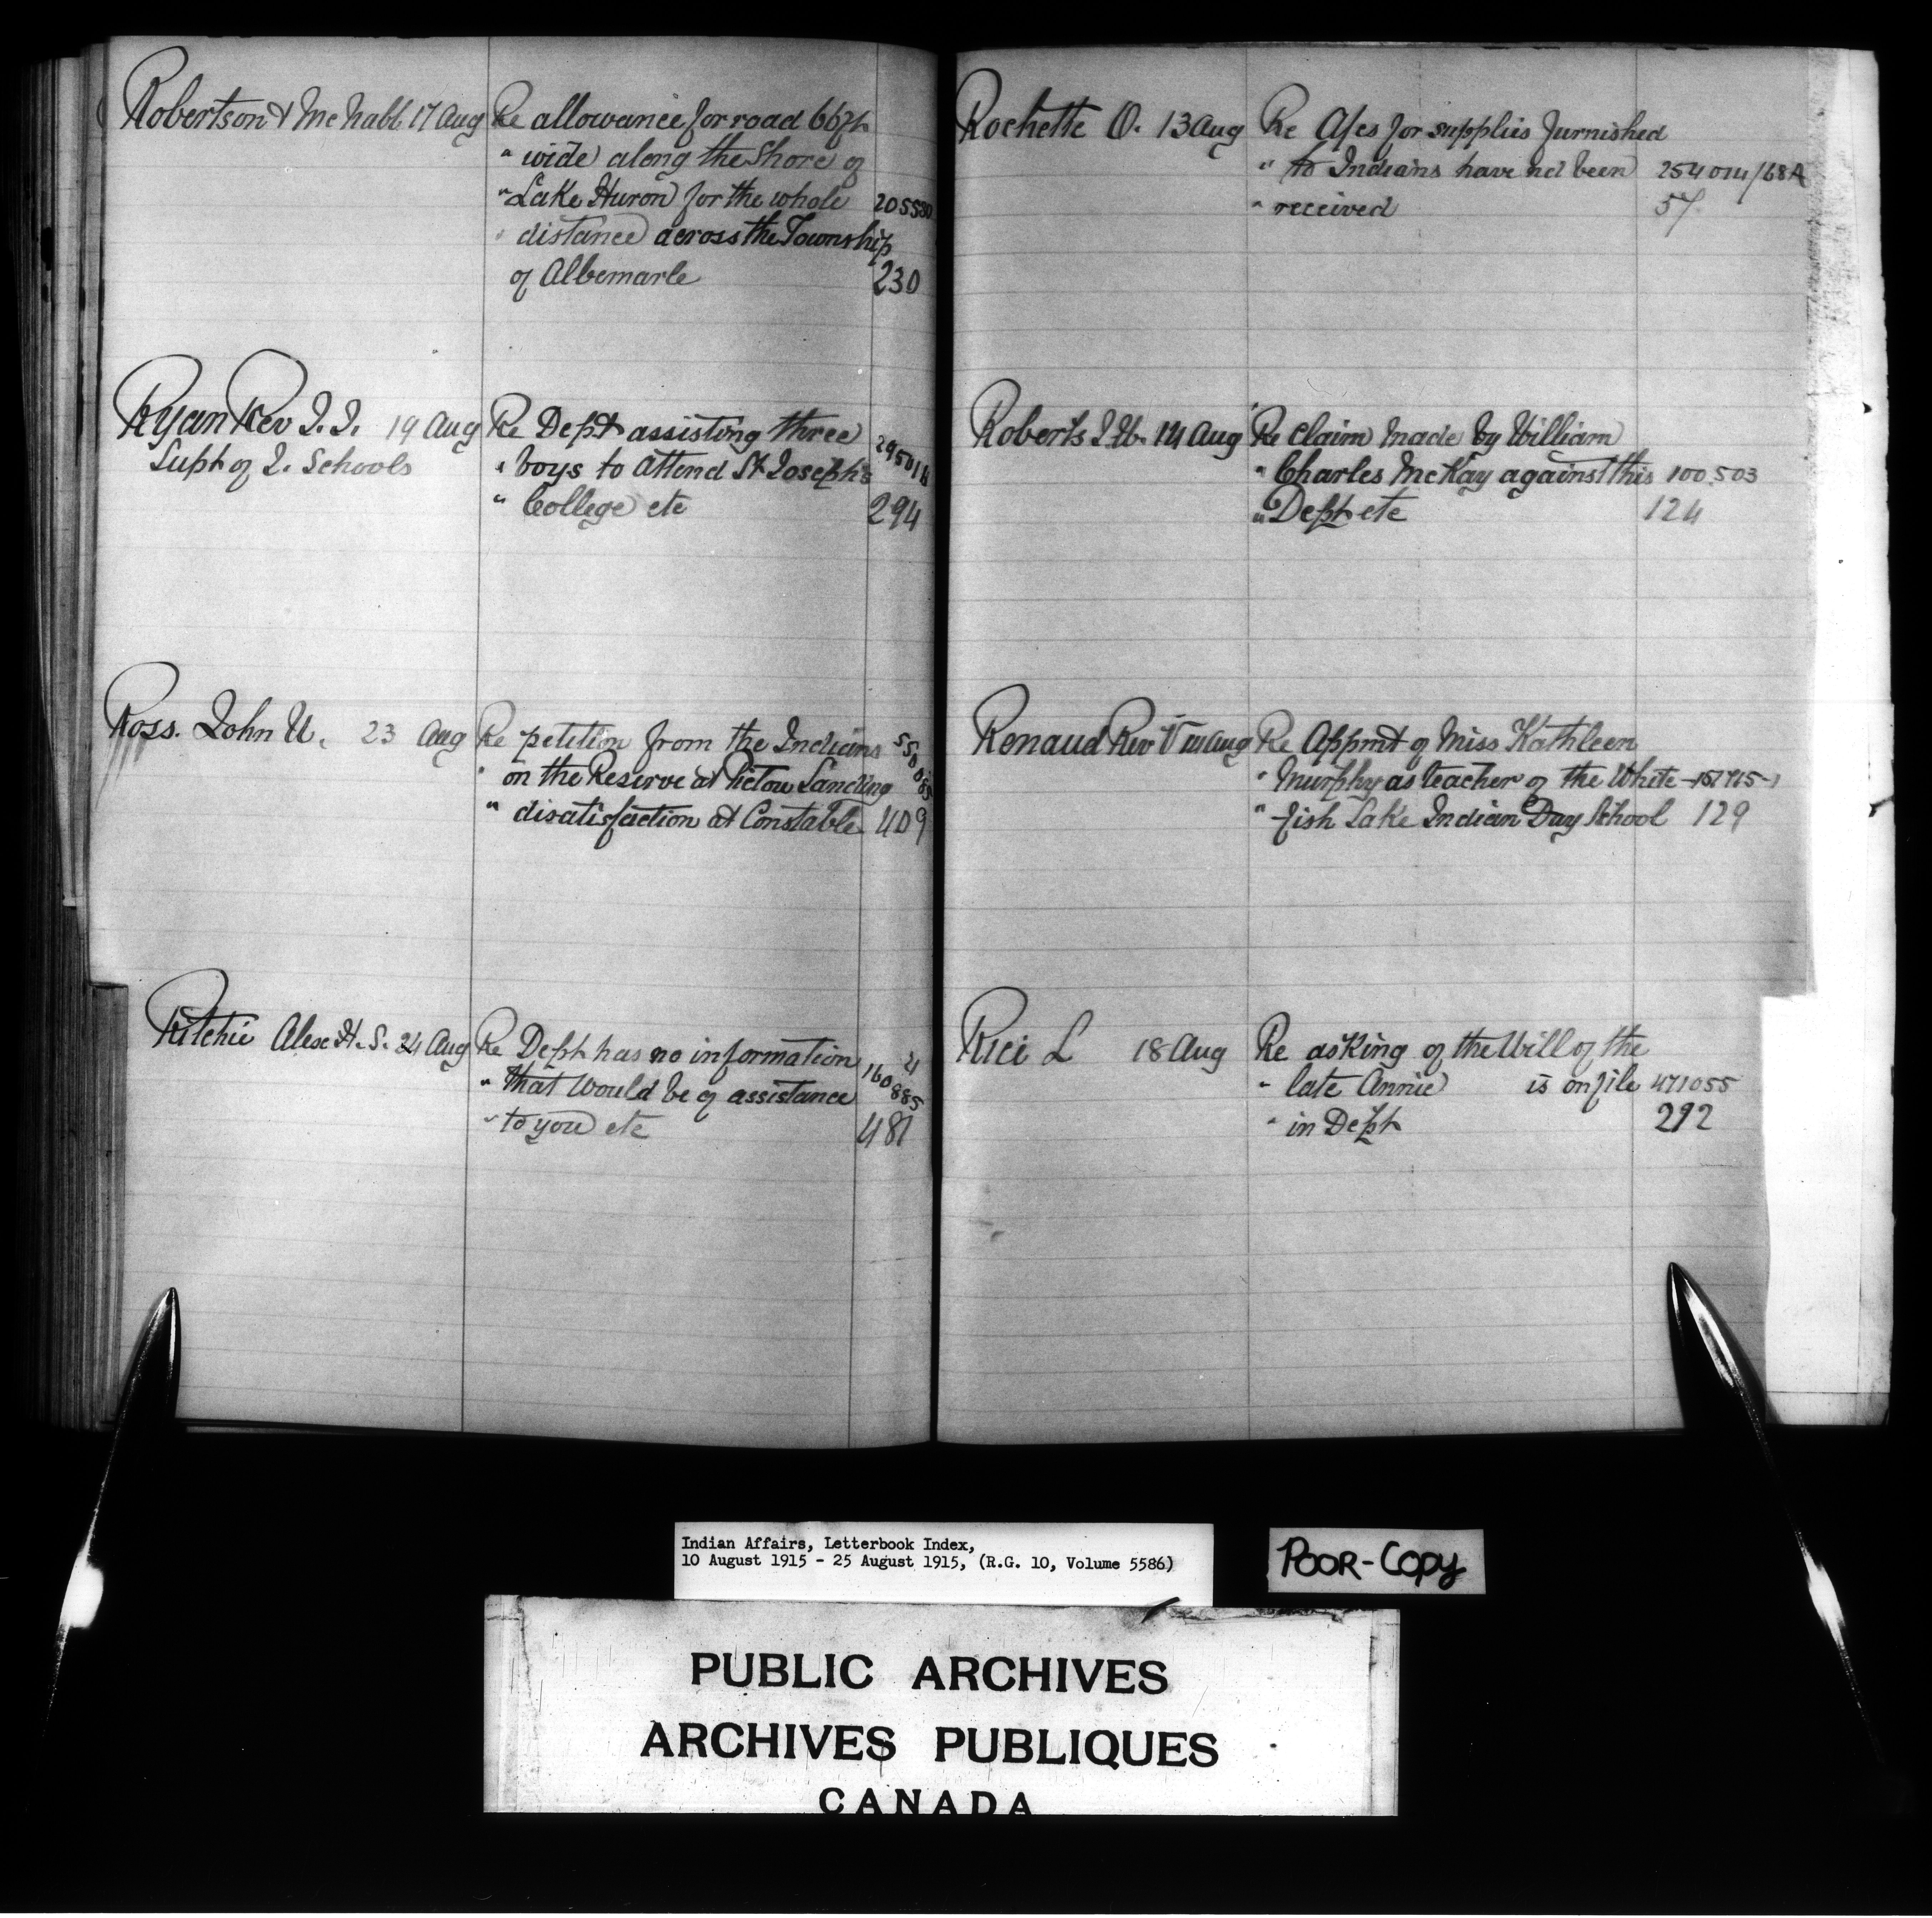 Robertson & McNabb 17 Aug Re allowance for road 66 ft
" wide along the Shore of
" Lake Huron for the whole 205530
" distance across the Township
of Albemarle 230
Ryan Rev J. J. 19 Aug Re Dept assisting three
Supt of I. Schools " boys to attend St Joseph's 295014
" College etc 294
Ross. John U. 23 Aug Re petition from the Indians 550085
" on the Reserve at Pictou Landing
" disatisfaction at Constable 409
Ritchie Alex H. S. 24 Aug Re Dept has no information
" that would be of assistance 160885
" to you etc 481
Rochette O. 13 Aug Re A/cs for supplies furnished
" to Indians have not been 254014/68A
" received 57
Roberts J. W. 14 Aug Re claim made by William
" Charles McKay against this 100,503
" Dept etc 124
Renaud Rev V Aug Re Appmt of Miss Kathleen
" Murphy as teacher of the White-
" fish Lake Indian Day School 129
Rici L 18 Aug Re asking of the Will of the
" late Annie is on file 471055
" in Dept 292
Indian Affairs, Letterbook Index,
10 August 1915 - 25 August 1915, (R.G. 10, Volume 5586)
POOR-COPY
PUBLIC ARCHIVES
ARCHIVES PUBLIQUES
CANADA